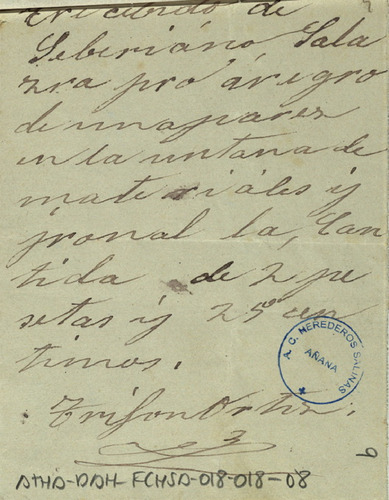 Erecibido de
Seberiano Sala
zra pro aregro
de unapárez
en la untana de
materiáles y
jronal la, Can
tida de 2 pe
setas y 25 cen
timos.
Trifon Ortiz
A. C. HEREDEROS SALINAS
AÑANA
9
ATHA-DAH-FCHSA-018-018-08